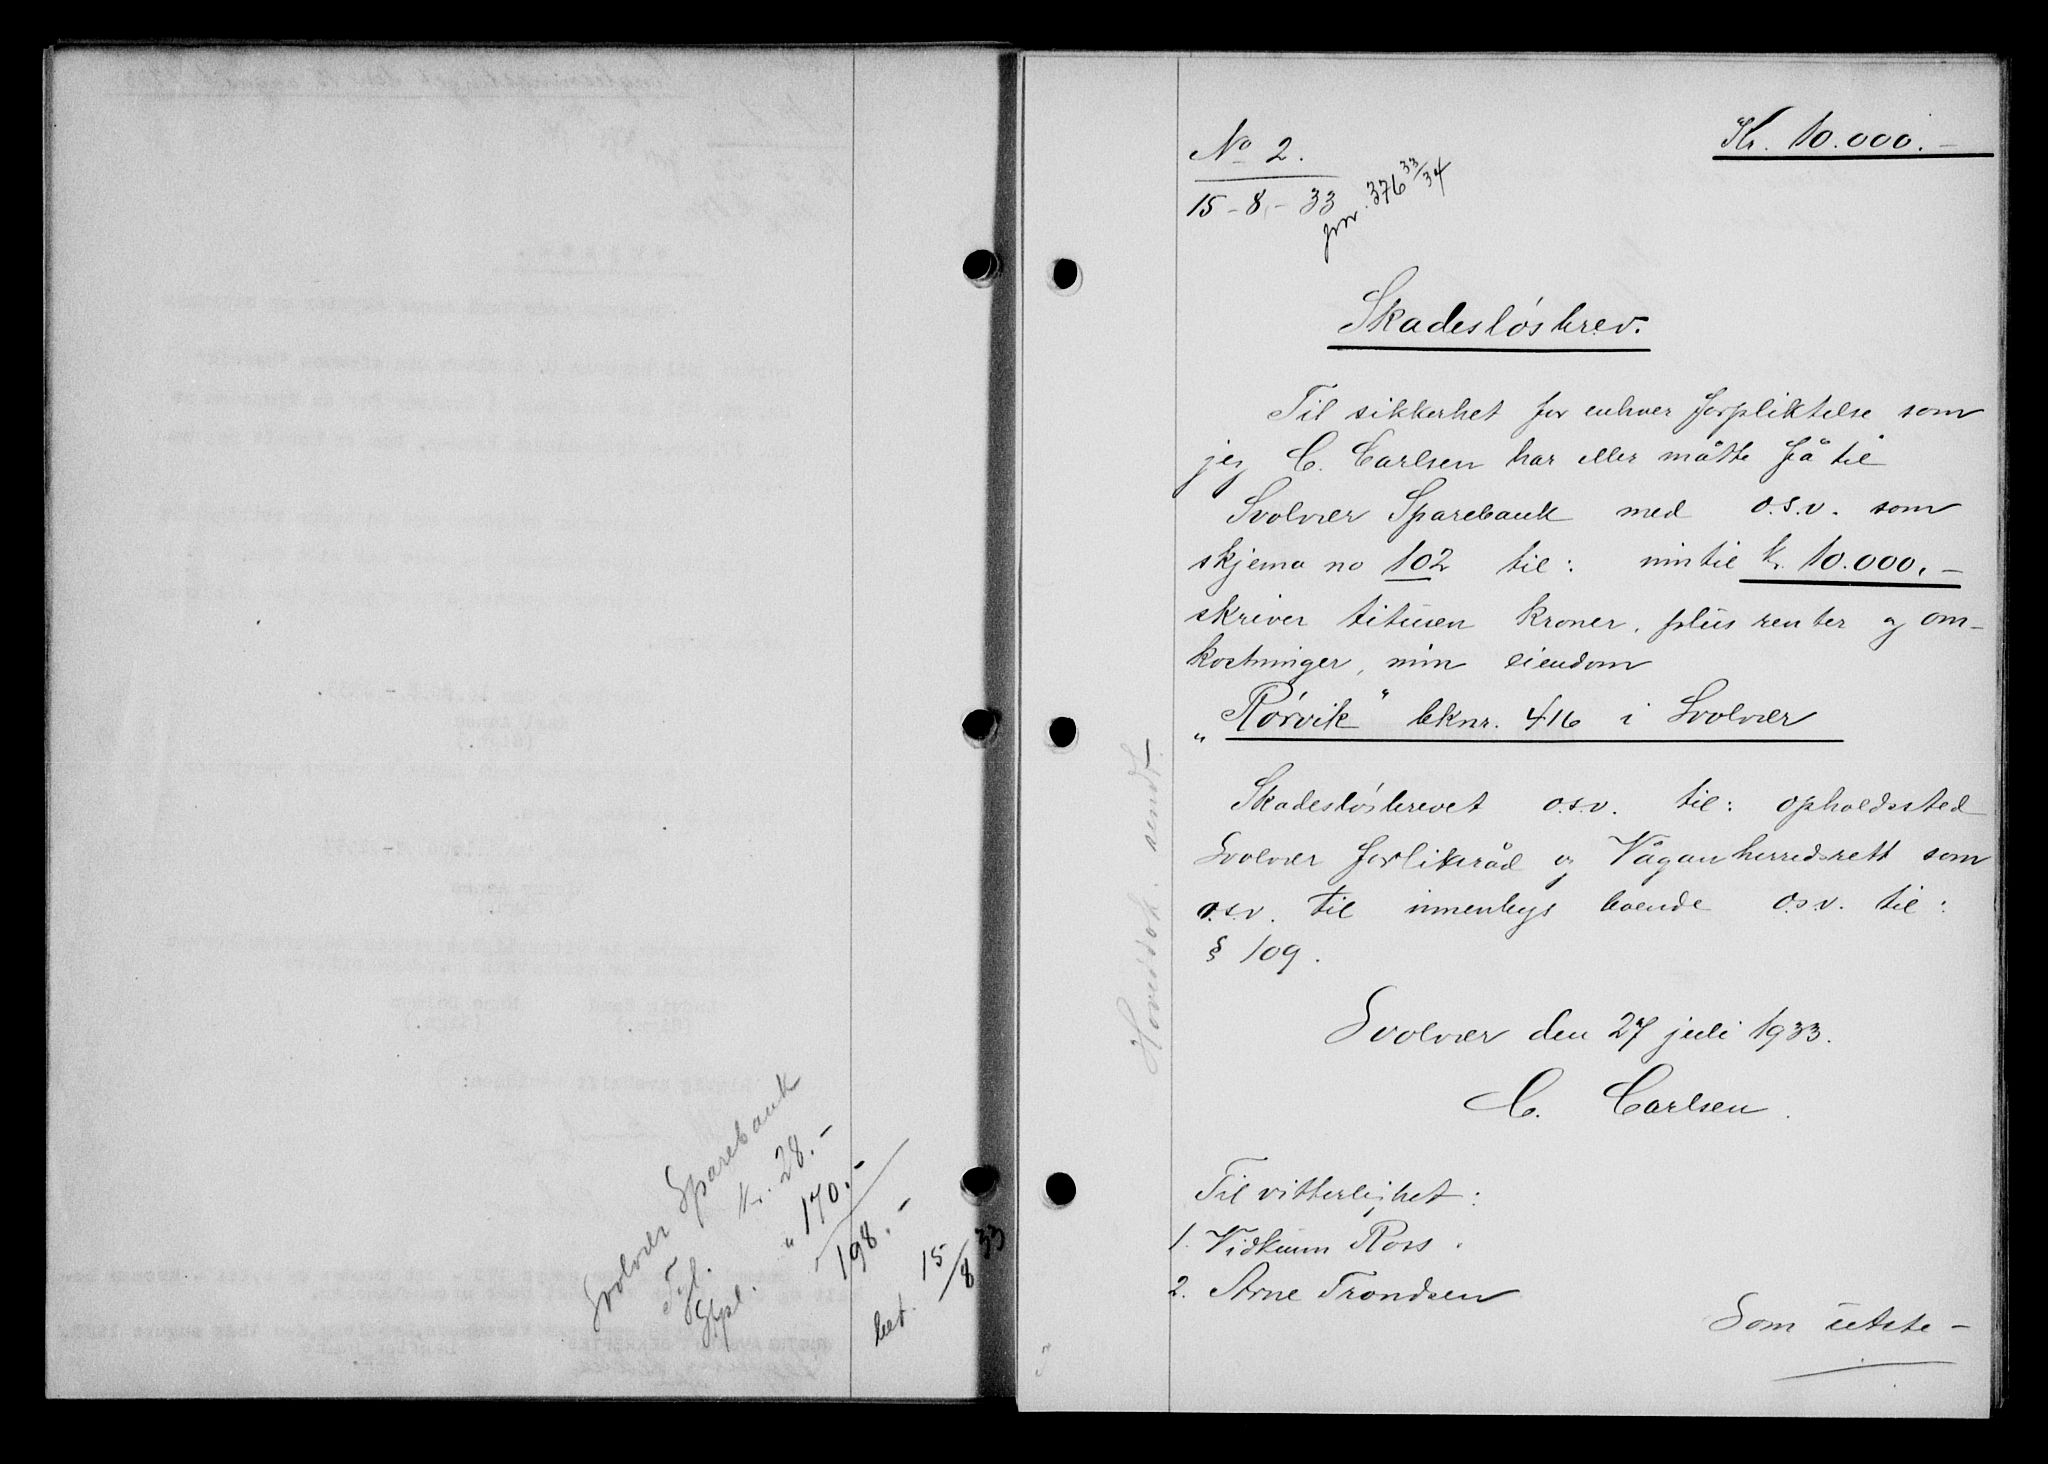 Svolvær Sparebank
Tgl. kr. 28.-
Stpl. " 170.-
198.-
bet. 15/8 33
Kr. 10.000.-
No 2.
15-8-33
jnr. 376 33/34
Skadesløsbrev.
Til sikkerhet for enhver forpliktelse som
jeg C. Carlsen har eller måtte få til
Svolvær Sparebank med o.s.v. som
skjema no 102 til: inntil kr. 10.000.-
skriver titusen kroner, plus renter og om-
kostninger, min eiendom
"Rørvik" bknr. 416 i Svolvær
Skadesløsbrevet o.s.v. til: opholdssted
Svolvær forliksråd og Vågan herredsrett som
o.s.v. til innenbys boende o.s.v. til:
§ 109.
Svolvær den 27 juli 1933.
C. Carlsen.
Til vitterlighet:
1. Vidkunn Ross.
2. Arne Trondsen
Som utste-
Hoveddok. sendt